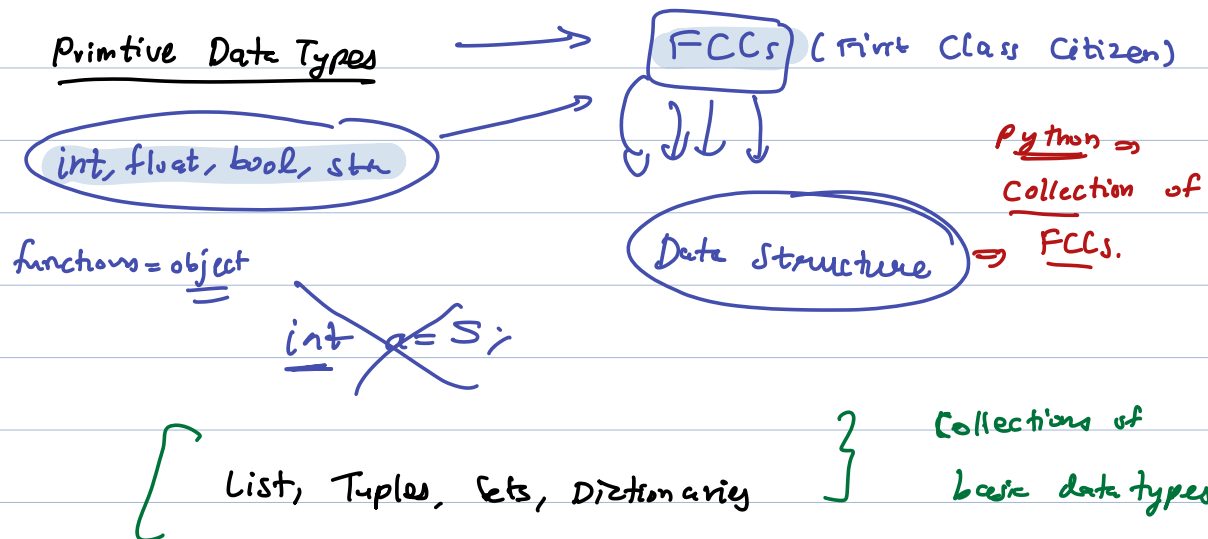 Primtive Data Types → FCCs (First Class Citizen)
int, float, bool, str
Python ⇒
Collection of
FCCs.
functions = object
Data Structure ⇒
int a = 5;
List, Tuples, Sets, Dictionaries
Collections of
basic data types